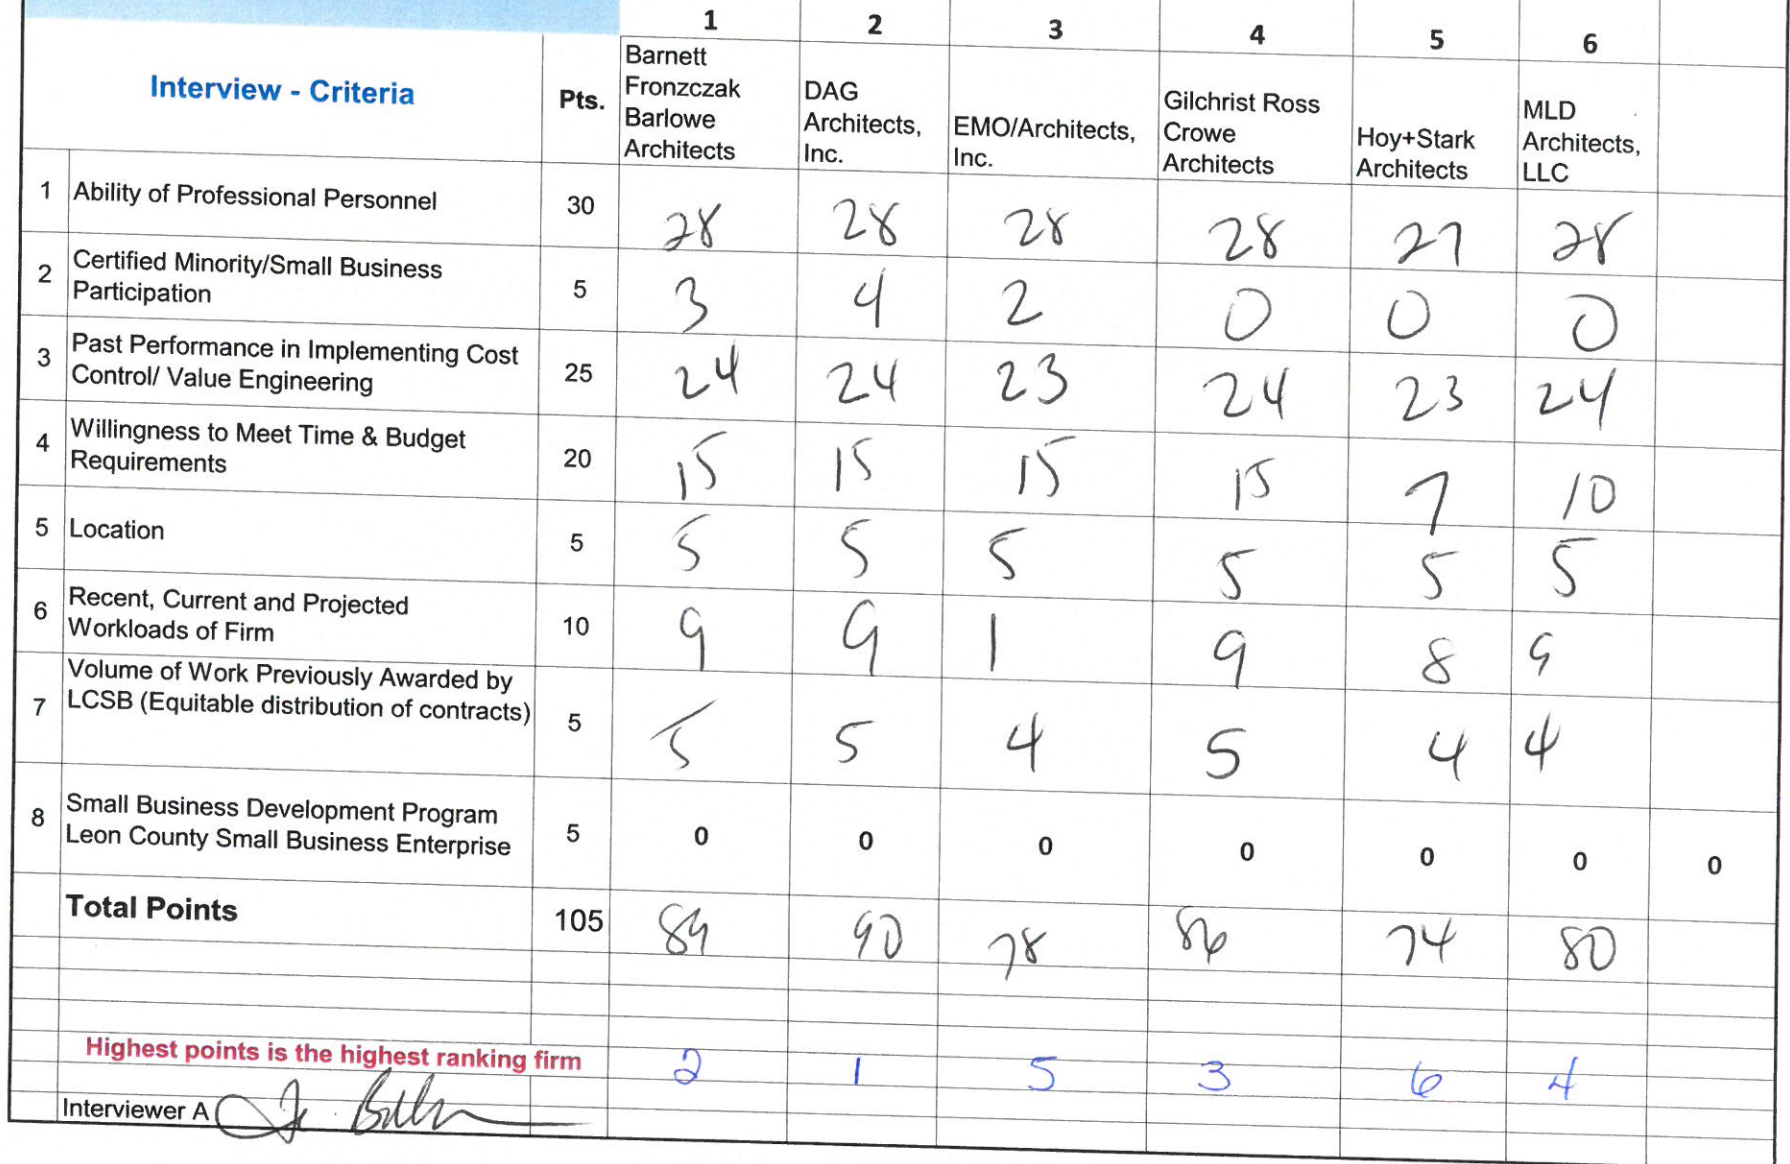 1 2 3 4 5 6
Interview - Criteria Pts. Barnett Fronzczak Barlowe Architects DAG Architects, Inc. EMO/Architects, Inc. Gilchrist Ross Crowe Architects Hoy+Stark Architects MLD Architects, LLC
1 Ability of Professional Personnel 30 28 28 28 28 27 28
2 Certified Minority/Small Business Participation 5 3 4 2 0 0 0
3 Past Performance in Implementing Cost Control/ Value Engineering 25 24 24 23 24 23 24
4 Willingness to Meet Time & Budget Requirements 20 15 15 15 15 7 10
5 Location 5 5 5 5 5 5 5
6 Recent, Current and Projected Workloads of Firm 10 9 9 1 9 8 9
7 Volume of Work Previously Awarded by LCSB (Equitable distribution of contracts) 5 5 5 4 5 4 4
8 Small Business Development Program Leon County Small Business Enterprise 5 0 0 0 0 0 0 0
Total Points 105 89 90 78 86 74 80
Highest points is the highest ranking firm 2 1 5 3 6 4
Interviewer A